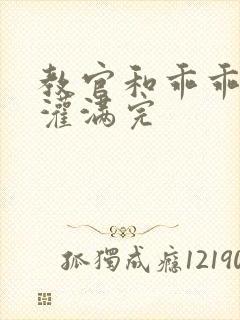 教官和乖乖
灌满完
孤獨成癮12190